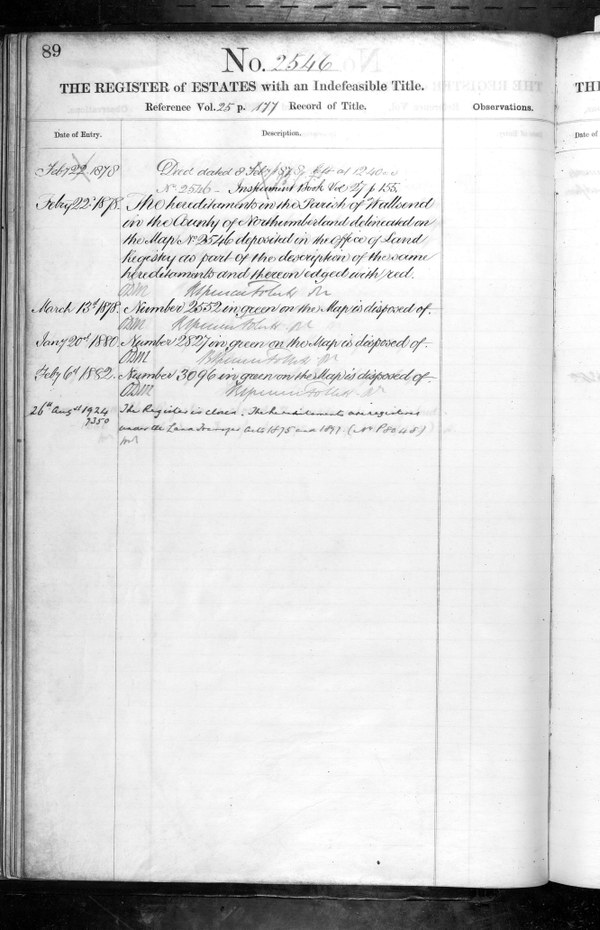 89
No. 2546
THE REGISTER of ESTATES with an Indefeasible Title.
Reference Vol. 25 p. 177 Record of Title.
Observations.
Date of Entry.
Description.
Feby 22 1878
Deed dated 8 Feby 1878 at 12.40
No 2546 - Instrument Book Vol 27 p 155.
Feby 22d 1878. The hereditaments in the Parish of Wallsend
in the County of Northumberland delineated on
the Map No 2546 deposited in the office of Land
Registry as part of the description of the same
hereditaments and thereon edged with red.
March 13th 1878. Number 2552 in green on the Map is disposed of.
Jany 20th 1880. Number 2827 in green on the Map is disposed of.
Feby 6th 1882. Number 3096 in green on the Map is disposed of.
26th Augst 1924
7350
The Register is closed. The hereditaments are registered
under the Land Transfer Acts 1875 and 1897. (No P 8048)
TH
Date of